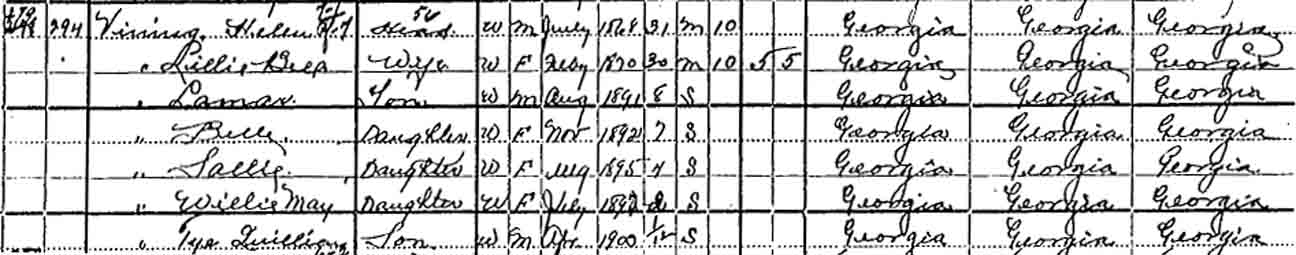 294 Vining, Helen Head W M July 1868 31 M 10 Georgia Georgia Georgia
" Lillie Bell Wife W F May 1870 30 M 10 5 5 Georgia Georgia Georgia
" Lamar Son W M Aug 1891 8 S Georgia Georgia Georgia
" Belle Daughter W F Nov 1892 7 S Georgia Georgia Georgia
" Sallie Daughter W F Aug 1895 4 S Georgia Georgia Georgia
" Willie May Daughter W F July 1897 2 S Georgia Georgia Georgia
" Tye Quillian Son W M Apr 1900 1/12 S Georgia Georgia Georgia